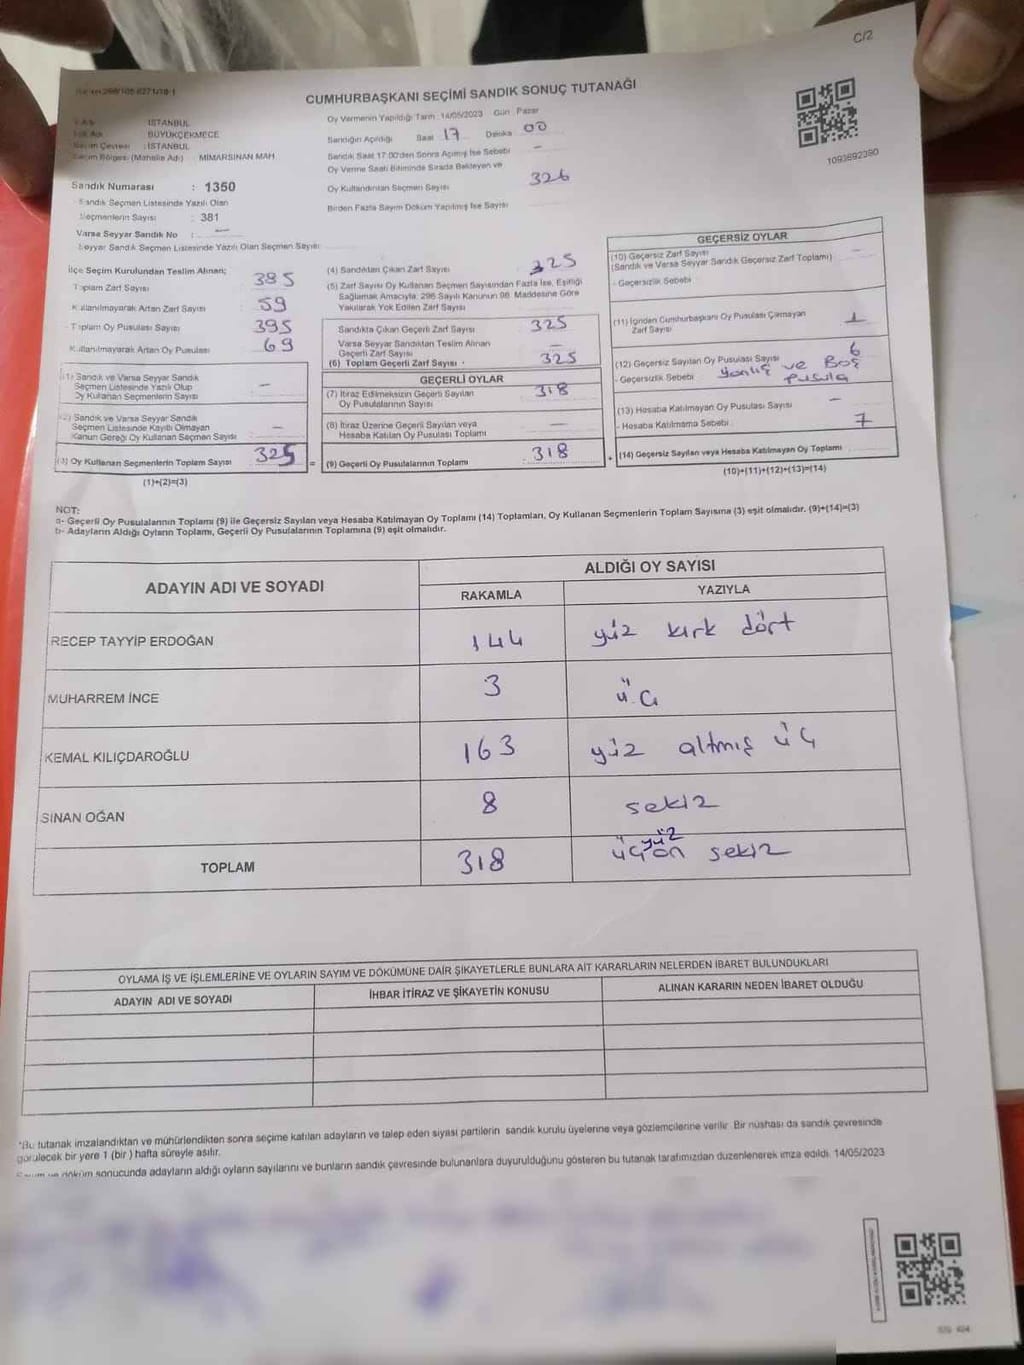 C/2
CUMHURBAŞKANI SEÇİMİ SANDIK SONUÇ TUTANAĞI
İSTANBUL
BÜYÜKÇEKMECE
Seçim Çevresi : İSTANBUL
Seçim Bölgesi (Mahalle Adı) : MİMARSİNAN MAH
Sandık Numarası : 1350
Sandık Seçmen Listesinde Yazılı Olan
Seçmenlerin Sayısı : 381
Varsa Seyyar Sandık No : —
Seyyar Sandık Seçmen Listesinde Yazılı Olan Seçmen Sayısı
Oy Vermenin Yapıldığı Tarih 14/05/2023 Gün Pazar
Sandığın Açıldığı Saat 17 Dakika 00
Sandık Saat 17:00'den Sonra Açılmış İse Sebebi —
Oy Verme Saati Bitiminde Sırada Bekleyen ve
Oy Kullandırılan Seçmen Sayısı 326
Birden Fazla Sayım Döküm Yapılmış İse Sayısı
1093692390
İlçe Seçim Kurulundan Teslim Alınan;
Toplam Zarf Sayısı 385
Kullanılmayarak Artan Zarf Sayısı 59
Toplam Oy Pusulası Sayısı 395
Kullanılmayarak Artan Oy Pusulası 69
(1) Sandık ve Varsa Seyyar Sandık
Seçmen Listesinde Yazılı Olup
Oy Kullanan Seçmenlerin Sayısı —
(2) Sandık ve Varsa Seyyar Sandık
Seçmen Listesinde Kayıtlı Olmayan
Kanun Gereği Oy Kullanan Seçmen Sayısı —
(3) Oy Kullanan Seçmenlerin Toplam Sayısı 325
(1)+(2)=(3)
(4) Sandıktan Çıkan Zarf Sayısı 325
(5) Zarf Sayısı Oy Kullanan Seçmen Sayısından Fazla İse, Eşitliği
Sağlamak Amacıyla; 298 Sayılı Kanunun 98. Maddesine Göre
Yakılarak Yok Edilen Zarf Sayısı
Sandıkta Çıkan Geçerli Zarf Sayısı 325
Varsa Seyyar Sandıktan Teslim Alınan
Geçerli Zarf Sayısı —
(6) Toplam Geçerli Zarf Sayısı 325
GEÇERLİ OYLAR
(7) İtiraz Edilmeksizin Geçerli Sayılan
Oy Pusulalarının Sayısı 318
(8) İtiraz Üzerine Geçerli Sayılan veya
Hesaba Katılan Oy Pusulası Toplamı —
= (9) Geçerli Oy Pusulalarının Toplamı 318
GEÇERSİZ OYLAR
(10) Geçersiz Zarf Sayısı —
(Sandık ve Varsa Seyyar Sandık Geçersiz Zarf Toplamı)
- Geçersizlik Sebebi
(11) İçinden Cumhurbaşkanı Oy Pusulası Çıkmayan
Zarf Sayısı 1
(12) Geçersiz Sayılan Oy Pusulası Sayısı 6
- Geçersizlik Sebebi Yanlış ve Boş
Pusula
(13) Hesaba Katılmayan Oy Pusulası Sayısı —
- Hesaba Katılmama Sebebi
7
+ (14) Geçersiz Sayılan veya Hesaba Katılmayan Oy Toplamı
(10)+(11)+(12)+(13)=(14)
NOT:
a- Geçerli Oy Pusulalarının Toplamı (9) ile Geçersiz Sayılan veya Hesaba Katılmayan Oy Toplamı (14) Toplamları, Oy Kullanan Seçmenlerin Toplam Sayısına (3) eşit olmalıdır. (9)+(14)=(3)
b- Adayların Aldığı Oyların Toplamı, Geçerli Oy Pusulalarının Toplamına (9) eşit olmalıdır.
ADAYIN ADI VE SOYADI
ALDIĞI OY SAYISI
RAKAMLA YAZIYLA
RECEP TAYYİP ERDOĞAN 144 yüz kırk dört
MUHARREM İNCE 3 üç
KEMAL KILIÇDAROĞLU 163 yüz altmış üç
SİNAN OĞAN 8 sekiz
TOPLAM 318 üç yüz on sekiz
OYLAMA İŞ VE İŞLEMLERİNE VE OYLARIN SAYIM VE DÖKÜMÜNE DAİR ŞİKAYETLERLE BUNLARA AİT KARARLARIN NELERDEN İBARET BULUNDUKLARI
ADAYIN ADI VE SOYADI İHBAR İTİRAZ VE ŞİKAYETİN KONUSU ALINAN KARARIN NEDEN İBARET OLDUĞU
*Bu tutanak imzalandıktan ve mühürlendikten sonra seçime katılan adayların ve talep eden siyasi partilerin sandık kurulu üyelerine veya gözlemcilerine verilir. Bir nüshası da sandık çevresinde
görülecek bir yere 1 (bir) hafta süreyle asılır.
Sayım ve döküm sonucunda adayların aldığı oyların sayılarını ve bunların sandık çevresinde bulunanlara duyurulduğunu gösteren bu tutanak tarafımızdan düzenlenerek imza edildi. 14/05/2023